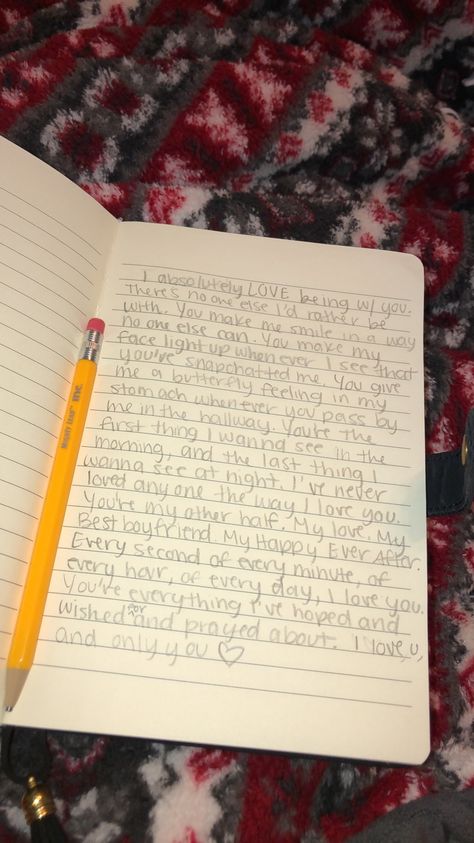 I absolutely LOVE being w/ you.
There's no one else I'd rather be
with. You make me smile in a way
no one else can. You make my
face light up whenever I see that
you've snapchatted me. You give
me a butterfly feeling in my
stomach whenever you pass by
me in the hallway. You're the
first thing I wanna see in the
morning, and the last thing I
wanna see at night. I've never
loved anyone the way I love you.
You're my other half. My love. My
Best boyfriend. My Happy Ever After.
Every second of every minute, of
every hour, of every day, I love you.
You're everything I've hoped and
wished for and prayed about. I love u,
and only you ♡